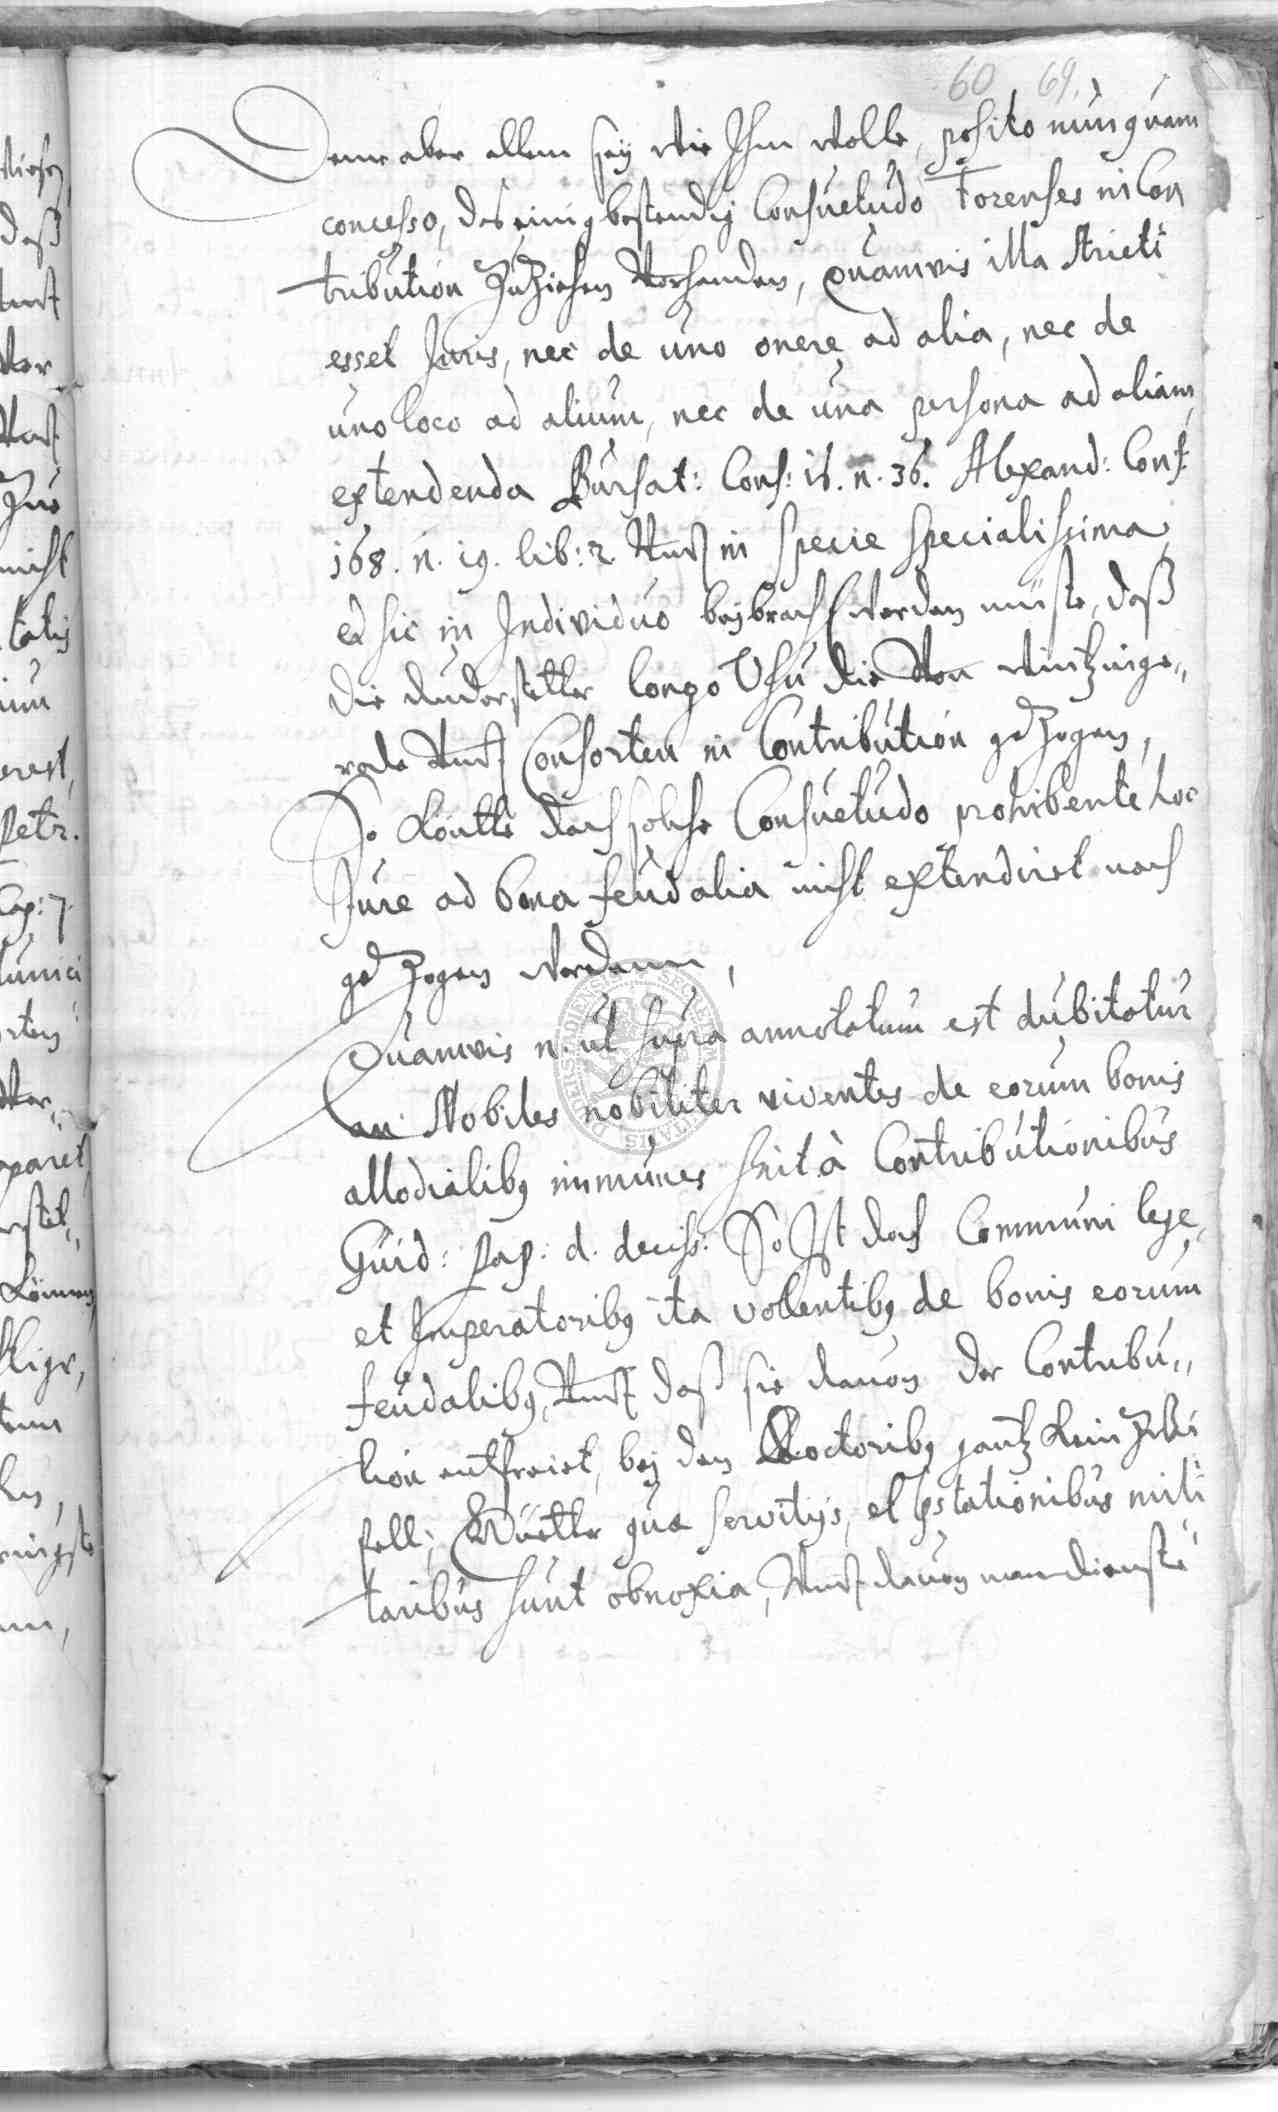 60 69.
Deme aber allem sey wie Ihm wolle, posito nunquam
concesso, das einig bestendig Consuetudo Forenses in Con
tribution Zuziehen Vorhanden, quamvis illa stricti
esset Juris, nec de uno onere ad alia, nec de
uno loco ad alium, nec de una persona ad aliam
extendenda Bursat: Cons: 16. n. 36. Alexand: Cons:
168. n. 19. lib: 2. Undt in specie specialissima
et sic in Individuo beybracht werden müste, daß
die duderstetter longo Usu die Von Wintzinge„
rode Undt Consorten in Contribution gezogen,
So köntte doch solche Consuetudo prohibente hoc
Jure ad bona feudalia nicht extendiret noch
gezogen werdenn,
Quamvis n. ut supra annotatum est dubitatur
an Nobiles nobiliter viventes de eorum bonis
allodialibus immunes sint à Contributionibus
Guid: Pap: d. decis: So Ist doch Communi lege,
et Imperatoribus ita volentibus de bonis eorum
feudalibus, Undt daß sie dauon der Contribu„
tion entfreiet, bey den Doctoribus gantz kein Zwei
fell, quæ servitijs, et pstationibus mili
taribus sunt obnoxia, Undt dauon man dienste
SECRETUM